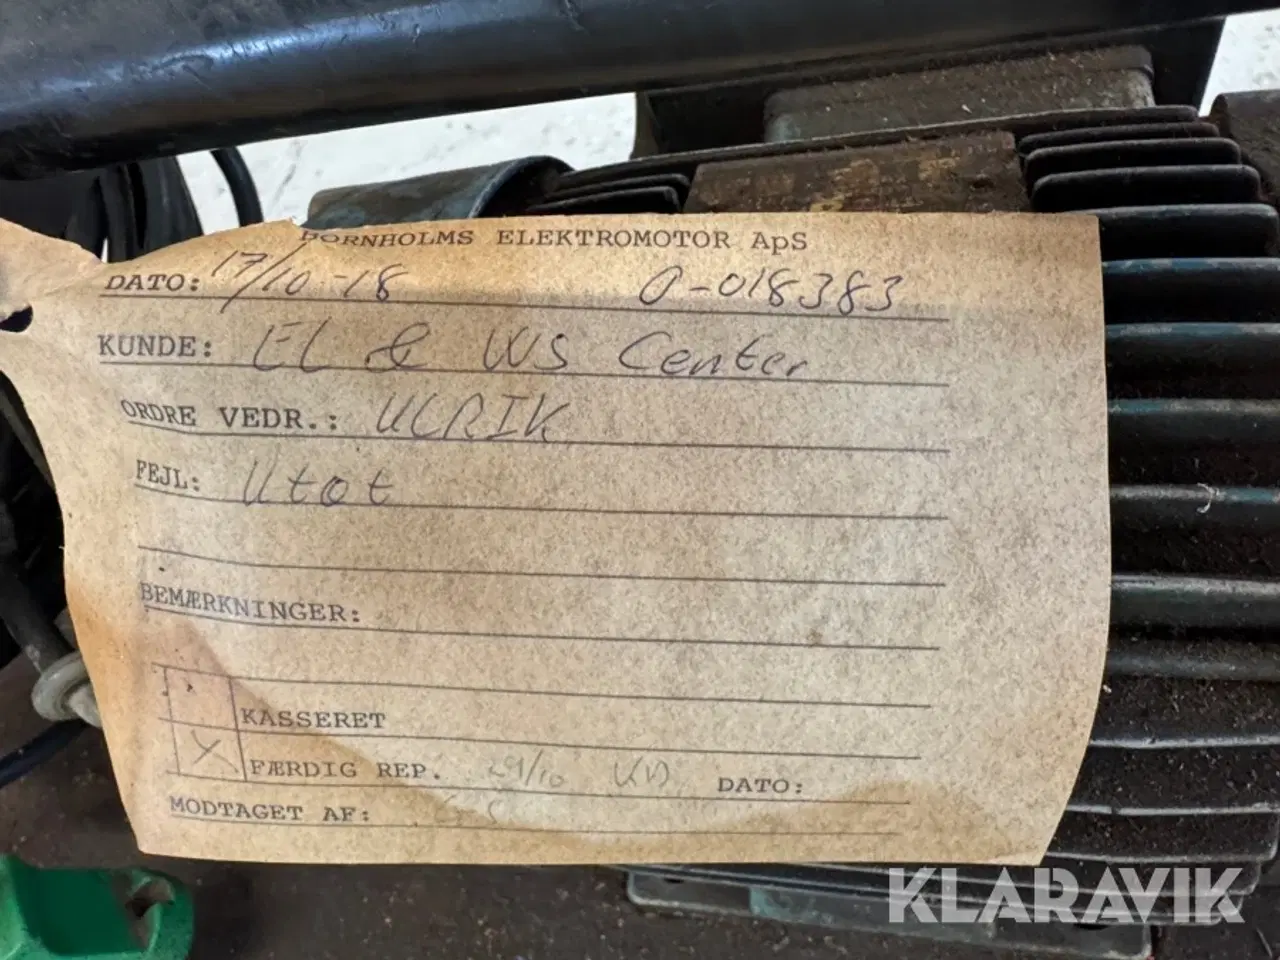 BORNHOLMS ELEKTROMOTOR ApS
DATO: 17/10-18 0-018383
KUNDE: EL & VVS Center
ORDRE VEDR.: ULRIK
FEJL: Utæt
BEMÆRKNINGER:
KASSERET
X FÆRDIG REP. 29/10 DATO:
MODTAGET AF:
KLARAVIK